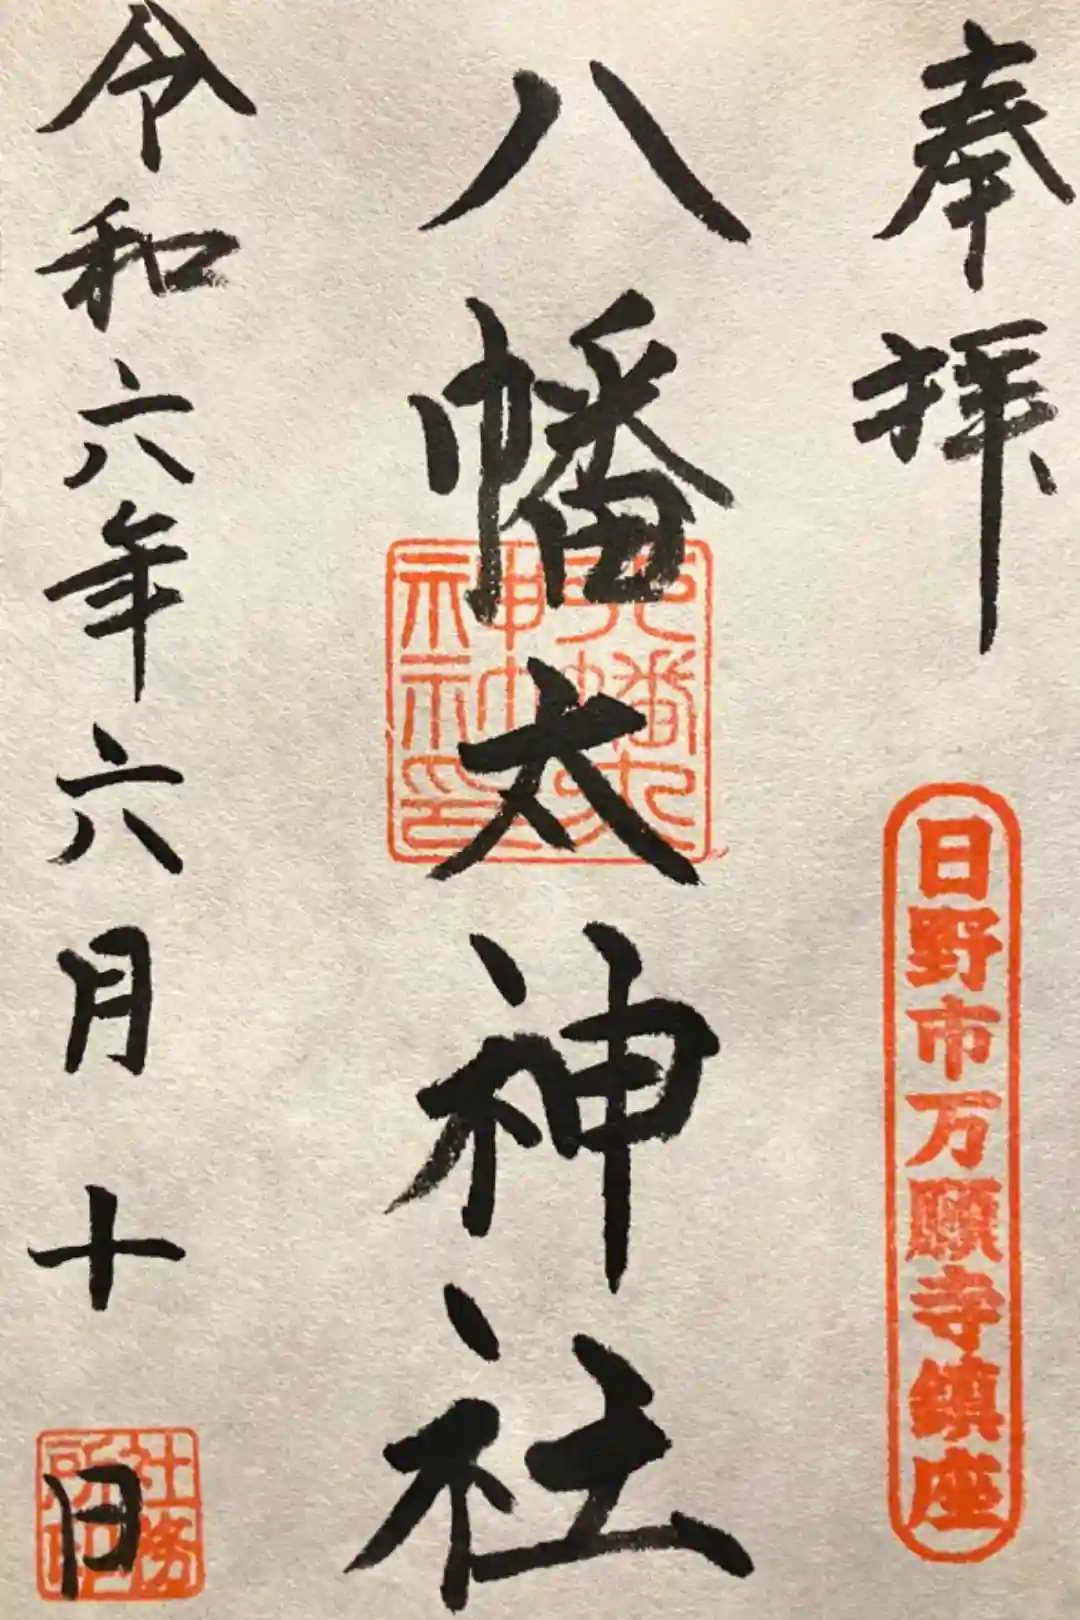 奉拝
日野市万願寺鎮座
八幡太神社
八幡大神社神社印
令和六年六月十日
社務所印